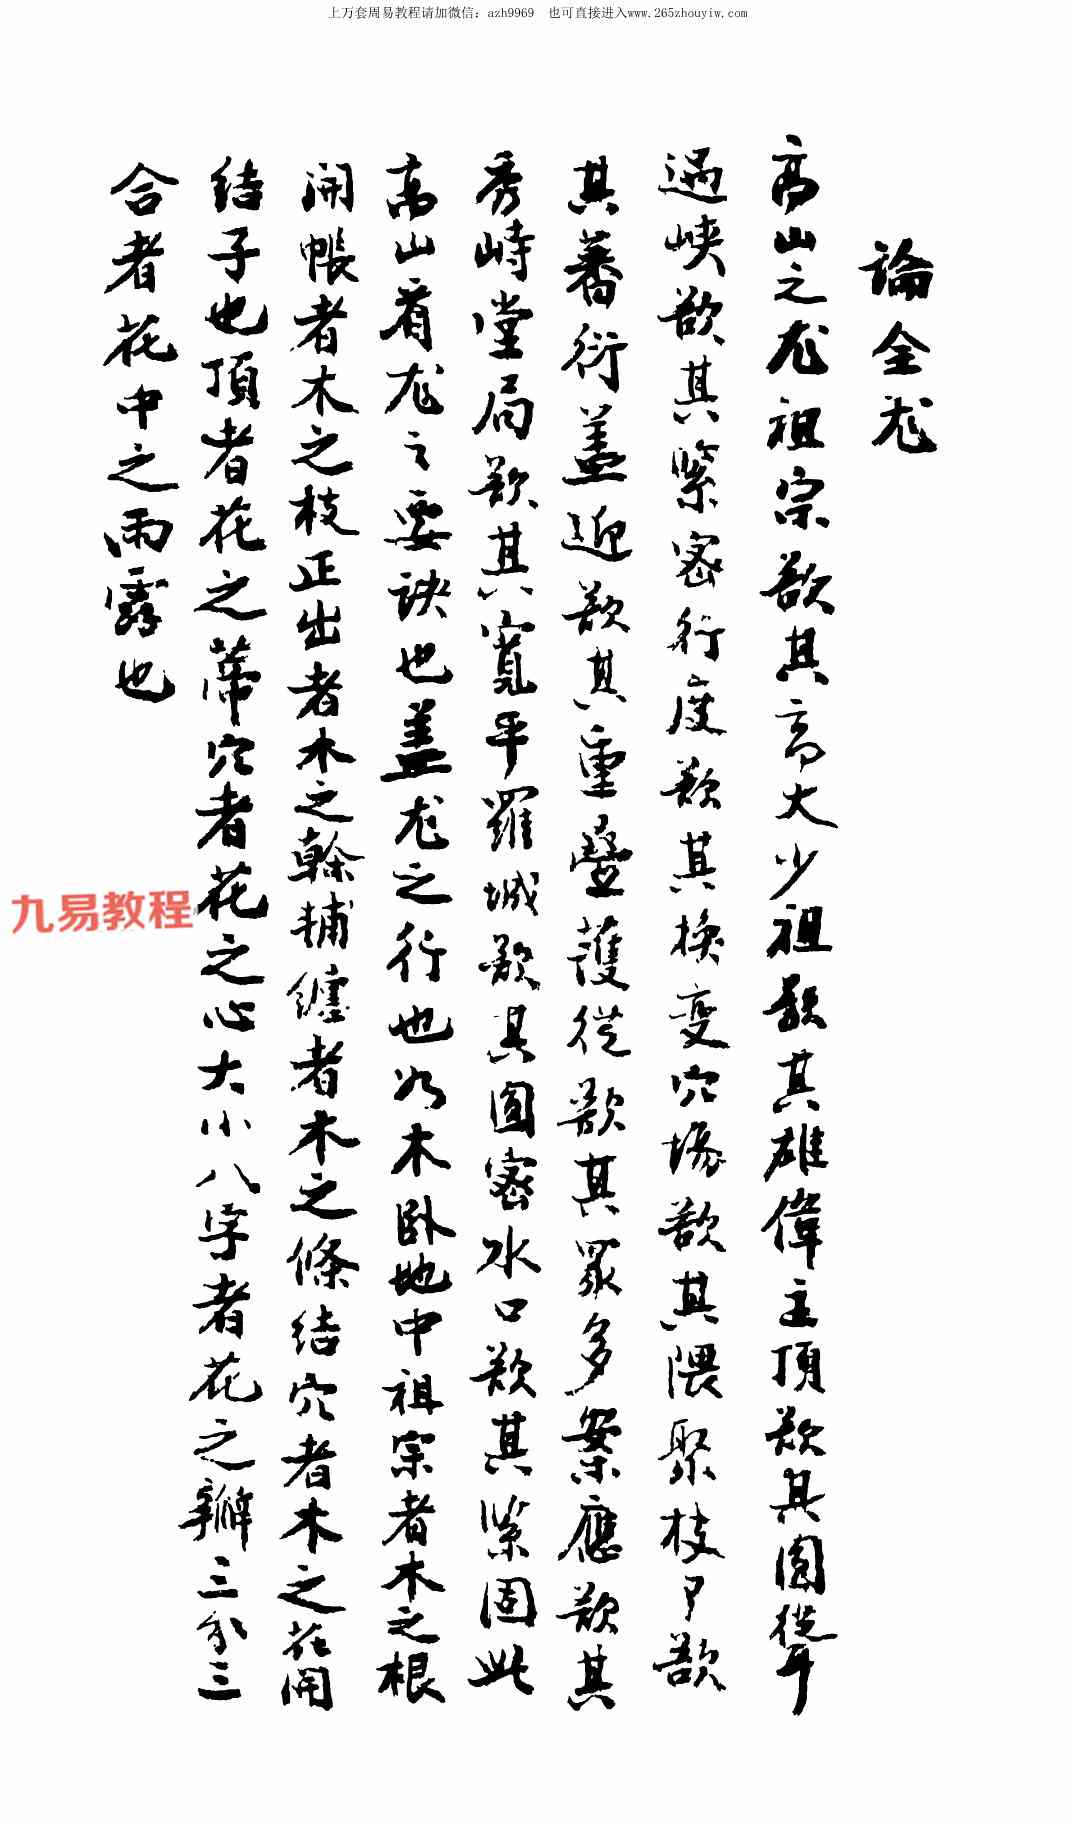 上万套周易教程请加微信：azh9969　也可直接进入www.265zhouyiw.com
論全龙
高山之龙祖宗欲其高大少祖欲其雄偉主頂欲其圓聳
過峡欲其緊密行度欲其換变穴場欲其隈聚枝口欲
其蕃衍盖迎欲其重叠護從欲其眾多案應欲其
秀峙堂局欲其寬平羅城欲其圓密水口欲其緊固此
高山看龙之要訣也盖龙之行也如木卧地中祖宗者木之根
開帳者木之枝正出者木之榦輔纏者木之條结穴者木之花開
结子也頂者花之蒂穴者花之心大小八字者花之瓣三分三
合者花中之雨露也
九易教程